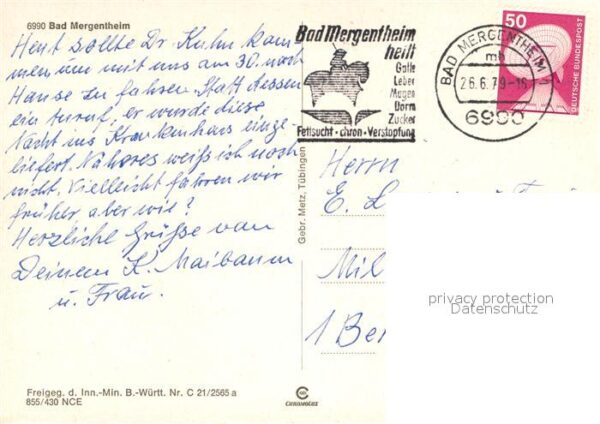 6990 Bad Mergentheim
Heut sollte Dr. Kuhn kom
men um mit uns am 30. nach
Hause zu fahren. Statt dessen
ein Anruf, er wurde diese
Nacht ins Krankenhaus einge-
liefert. Näheres weiß ich noch
nicht. Vielleicht fahren wir
früher, aber wie?
Herzliche Grüsse von
Deinem K. Maibaum
u. Frau.
Freigeg. d. Inn.-Min. B.-Württ. Nr. C 21/2565 a
855/430 NCE
Gebr. Metz, Tübingen
CEKADEGE
Bad Mergentheim
heilt
Galle
Leber
Magen
Darm
Zucker
Fettsucht · chron · Verstopfung
BAD MERGENTHEIM
mb
26.6.79-16
6990
50
DEUTSCHE BUNDESPOST
Herrn
E. L
Mil
1 Ber
privacy protection
Datenschutz